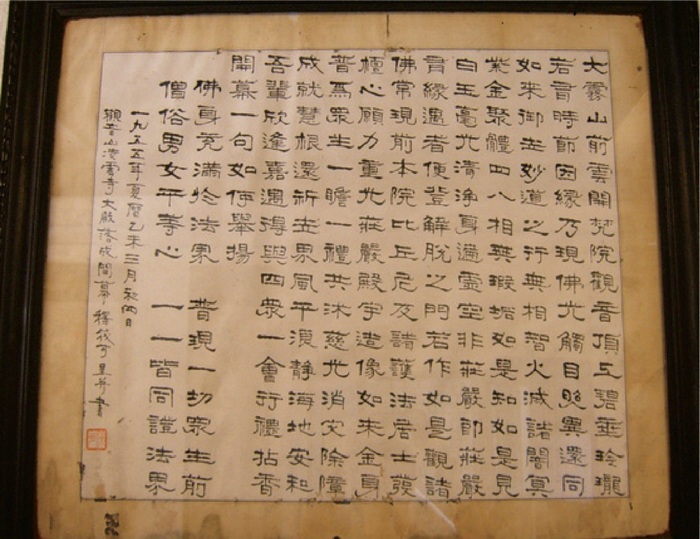 大霧山前雲開梵院觀音頂上碧華玲瓏
若言時節因緣乃現佛光觸目異還同
如来御世妙道之行無相智火滅諸闇冥
紫金聚體四八相無瑕垢如是知如是見
白玉毫光清淨身遍虛空非莊嚴即莊嚴
有緣遇者便登解脫之門若作如是觀諸
佛常現前本院比丘尼及諸護法居士發
檀心願力重光莊嚴殿宇造像如来金身
普為眾生一瞻一禮共沐慈光消灾除障
成就慧根還祈世界風平浪静海地安和
吾輩欣逢嘉遇得與四衆一會行禮拈香
開幕一句如何舉揚
佛身充滿於法界 普現一切眾生前
僧俗男女平等心 一一皆同證法界
一九五五年夏曆乙未三月初四日
觀音山凌雲寺大殿落成開幕 釋筏可並書